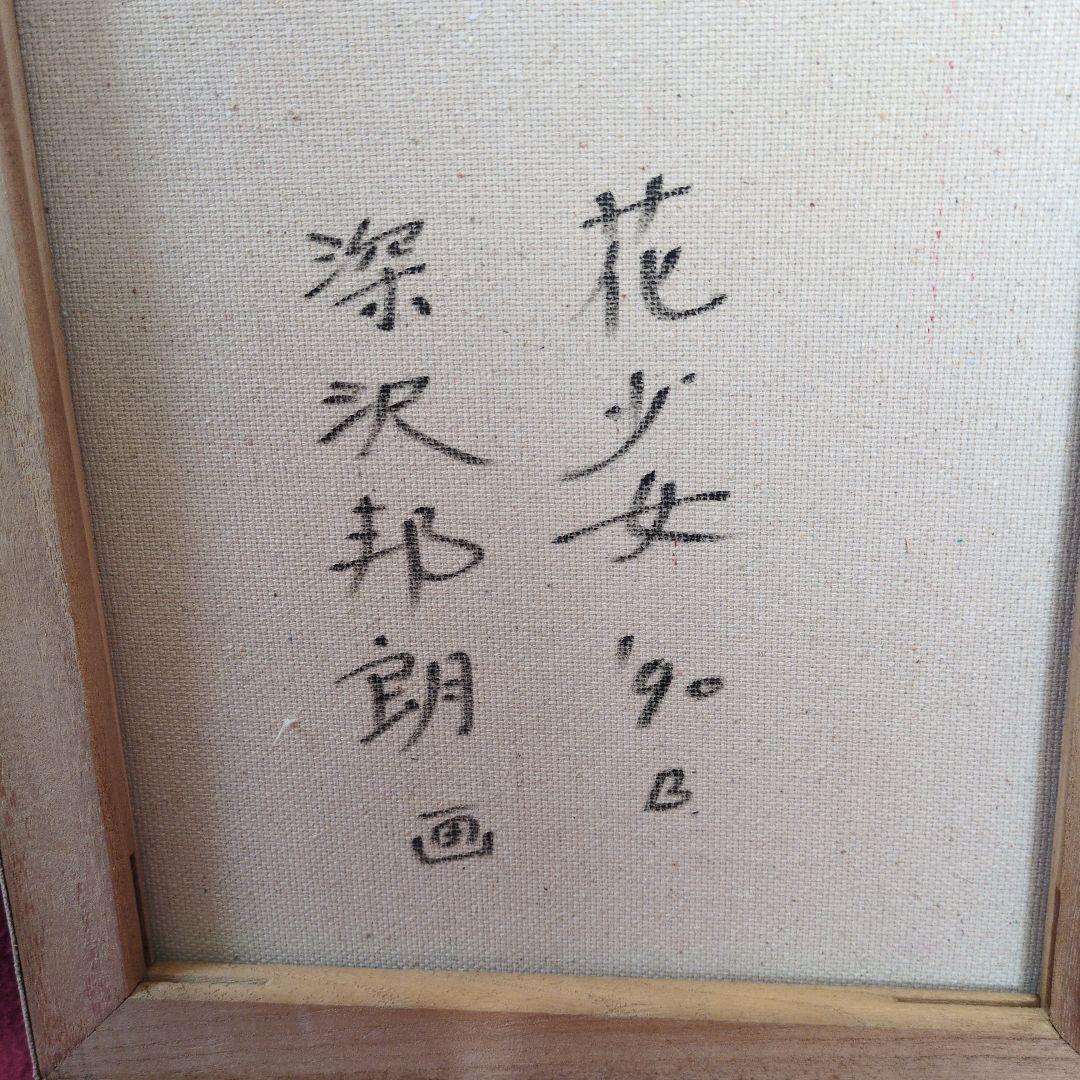 花少女 '90 B
深沢邦朗 画